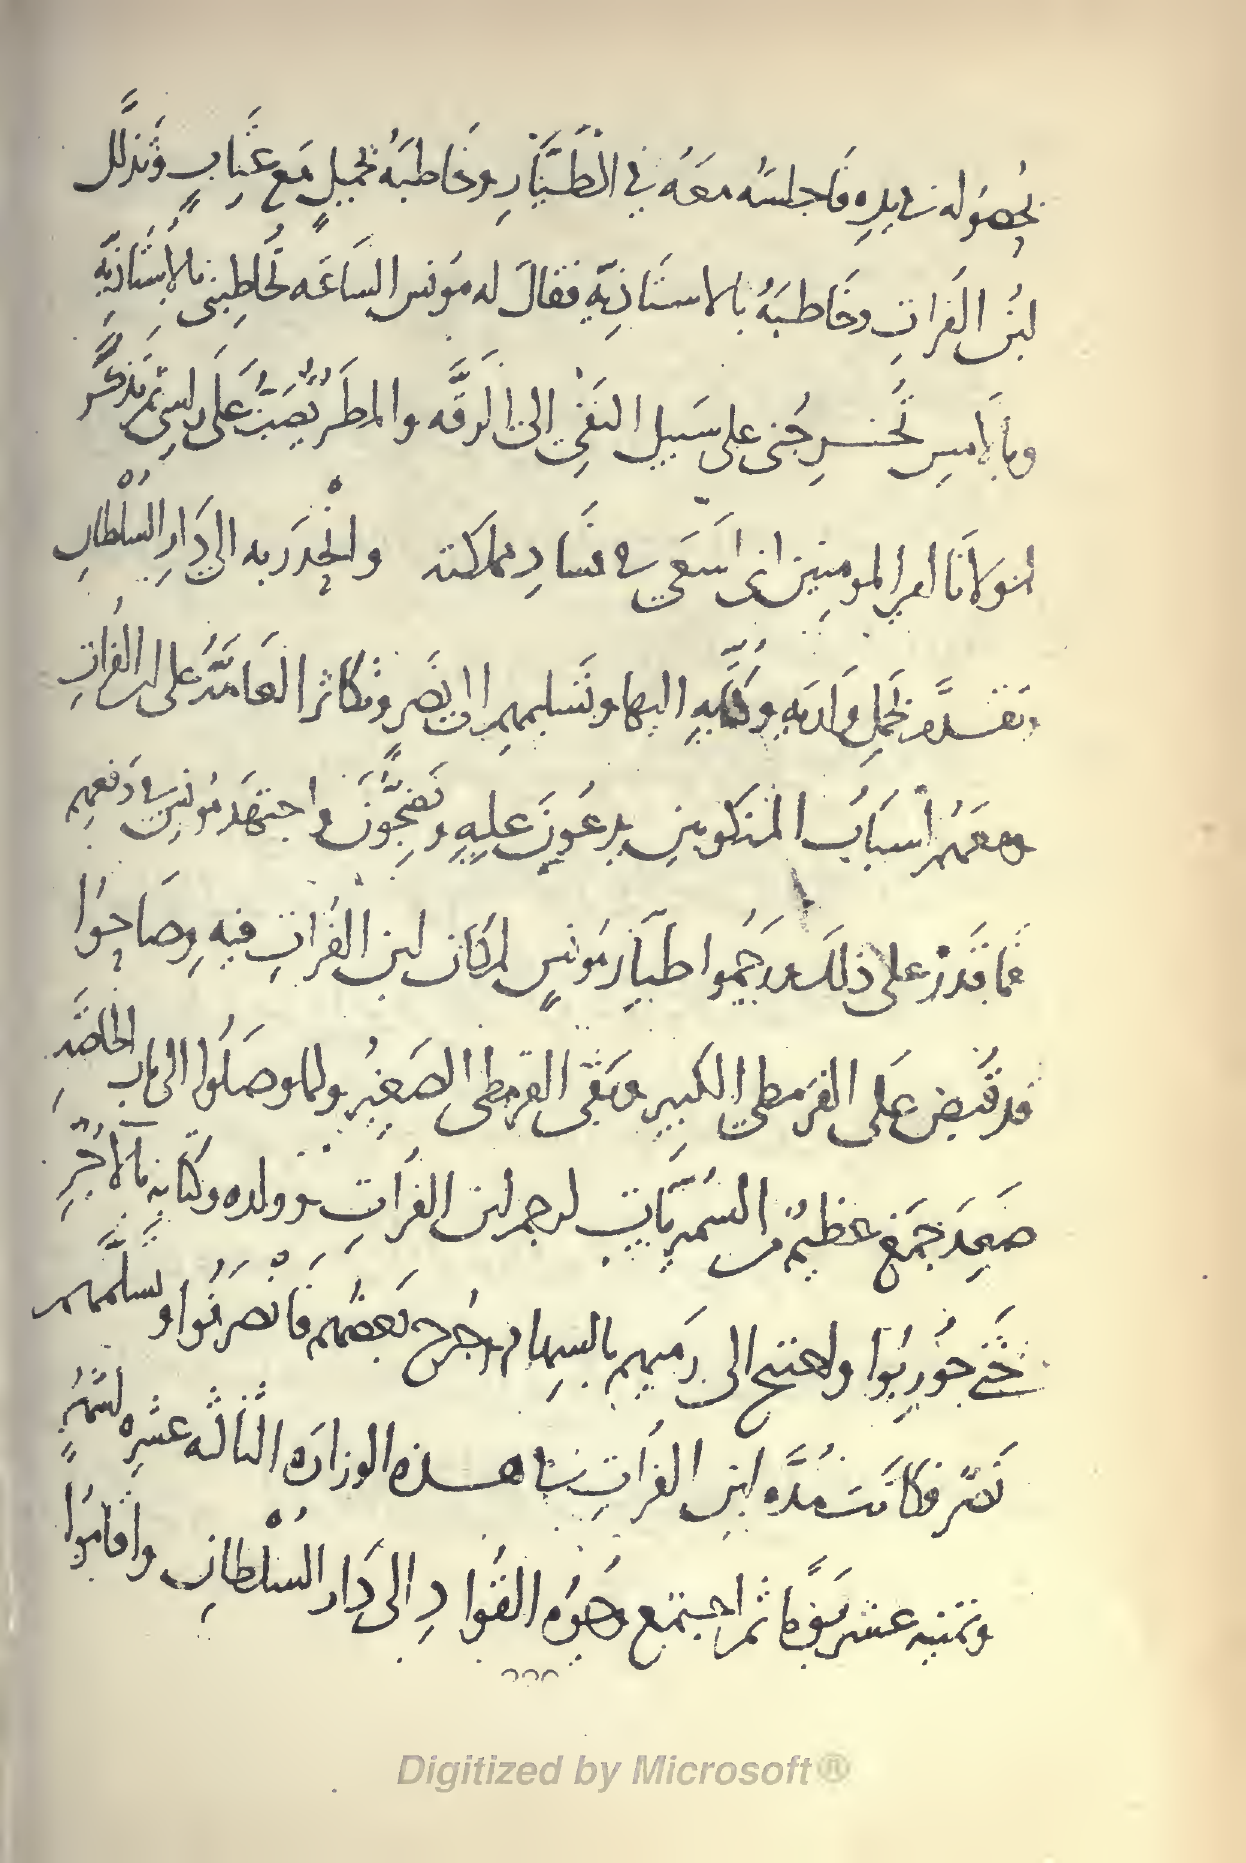 بحصوله في يده فاجلسه معه في الطيار وخاطبه بجميل مع عتاب وتذلل
ابن الفرات وخاطبه بالاستاذية فقال له مونس الساعه تخاطبني بالاستاذية
وبالامس تخرجني على سبيل النفي الى الرقه والمطر يصب على راسي ثم تذكر
لمولانا امير المومنين اني اسعى في فساد مملكته وانحدر به الى دار السلطان
وتقدم بحمل ولديه وكتابه اليها وتسليمهم الى نصر وتكاثر العامة على ابن الفرات
ومعهم أسباب المنكوبين يدعون عليه ويضجون واجتهد مونس في دفعهم
فما قدر على ذلك ورجموا طيار مونس لمكان ابن الفرات فيه وصاحوا
قد قبض على القرمطي الكبير وبقى القرمطي الصغير ولما وصلوا الى باب الخاصة
صعد جمع عظيم من السميريات لرجم ابن الفرات وولده وكتابه بالآجر
حتى حوربوا واحتيج الى رميهم بالسهام وجرح بعضهم فانصرفوا وتسلمهم
نصر فكانت مده ابن الفرات في هذه الوزاره الثالثه عشره اشهر
وثمنيه عشر يوما ثم اجتمع وجوه القواد الى دار السلطان واقاموا
Digitized by Microsoft®